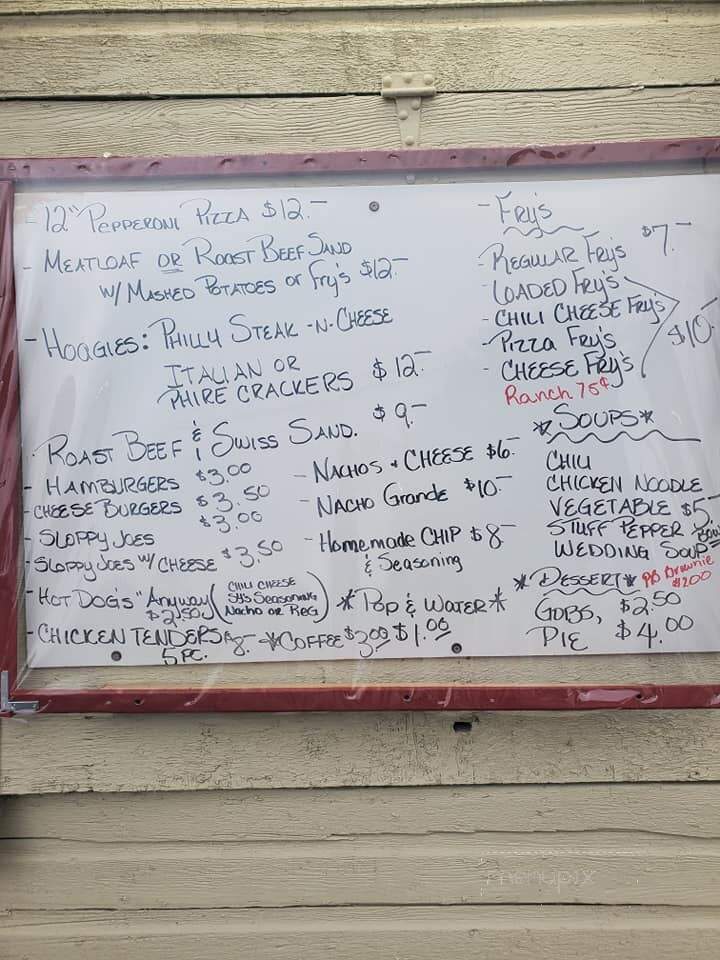 - 12" PEPPERONI PIZZA $12.-
- MEATLOAF OR ROAST BEEF SAND
W/ MASHED POTATOES or Fry's $12.-
- HOAGIES: PHILLY STEAK -N- CHEESE
ITALIAN OR
PHIRE CRACKERS $12.-
ROAST BEEF & SWISS SAND. $9.-
- HAMBURGERS $3.00
- CHEESE BURGERS $3.50
- SLOPPY JOES $3.00
- SLOPPY JOES W/ CHEESE $3.50
- HOT DOG'S "Anyway $2.50
CHILI CHEESE
Nacho or REG
- CHICKEN TENDERS 8.-
5 PC.
- NACHOS & CHEESE $6.-
- NACHO Grande $10.-
- Homemade CHIP $8.-
& Seasoning
*Pop & WATER* $1.00
*COFFEE $3.00
- Fry's
- REGULAR Fry's $7.-
- LOADED Fry's
- CHILI CHEESE Fry's
- Pizza Fry's $10.-
- CHEESE Fry's
Ranch 75¢
*SOUPS*
CHILI
CHICKEN NOODLE
VEGETABLE $5.-
STUFF PEPPER Bowl
WEDDING SOUP
*DESSERT* PB Brownie
$2.00
GOBS, $2.50
PIE $4.00
menupix